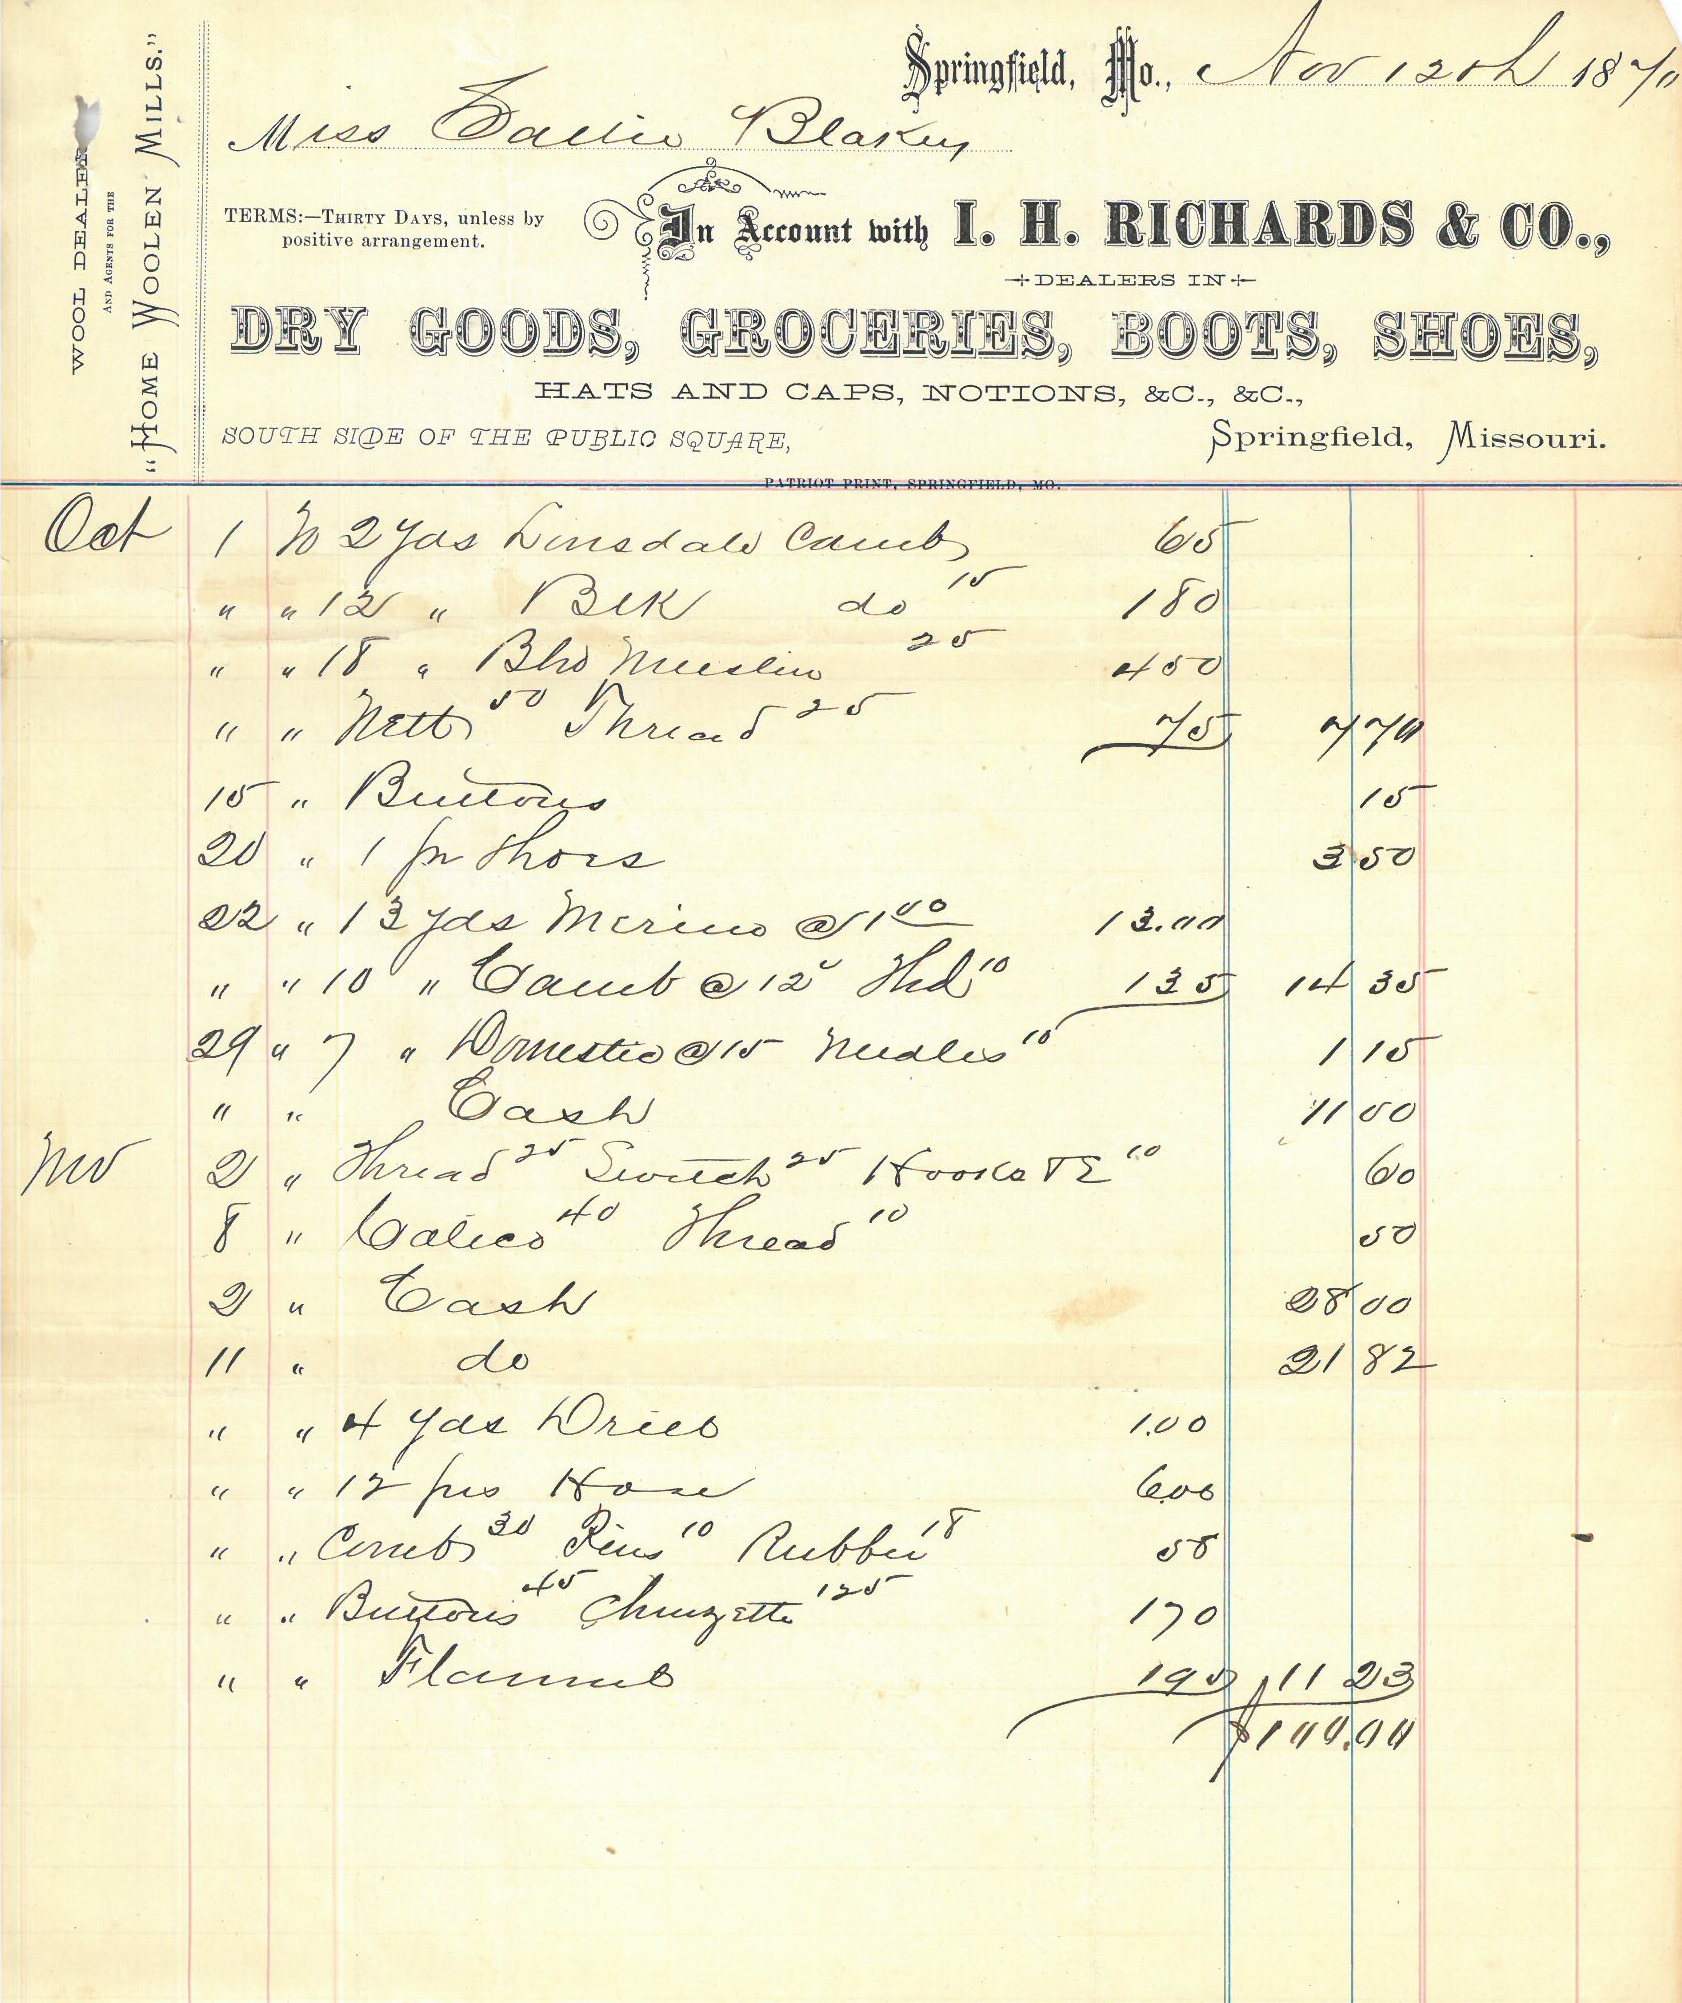 Springfield, Mo., Nov 12th 1870
Miss Sallie Blakey
WOOL DEALE
AND AGENTS FOR THE
"HOME WOOLEN MILLS."
TERMS:—THIRTY DAYS, unless by
positive arrangement.
In Account with I. H. RICHARDS & CO.,
DEALERS IN
DRY GOODS, GROCERIES, BOOTS, SHOES,
HATS AND CAPS, NOTIONS, &C., &C.,
SOUTH SIDE OF THE PUBLIC SQUARE, Springfield, Missouri.
PATRIOT PRINT, SPRINGFIELD, MO.
Oct 1 To 2 Yds Lonsdale Camb 65
" " 12 " Blk do 15 180
" " 18 " Bld Muslin 25 450
" " Nett 50 Thread 25 75 770
15 " Buttons 15
20 " 1 pr Shoes 350
22 " 13 yds Merino @ 1 00 13.00
" " 10 " Camb @ 12 5 Thd 10 135 14 35
29 " 7 " Domestic @ 15 Needles 10 1 15
" " Cash 11 00
Nov 2 " Thread 25 Switch 25 Hooks & E 10 60
8 " Calico 40 Thread 10 50
2 " Cash 28 00
11 " do 21 82
" " 4 Yds Drill 1.00
" " 12 prs Hose 6.00
" " Comb 30 Pins 10 Rubber 18 58
" " Buttons 45 125 170
" " Flannel 195 11 23
$100.00